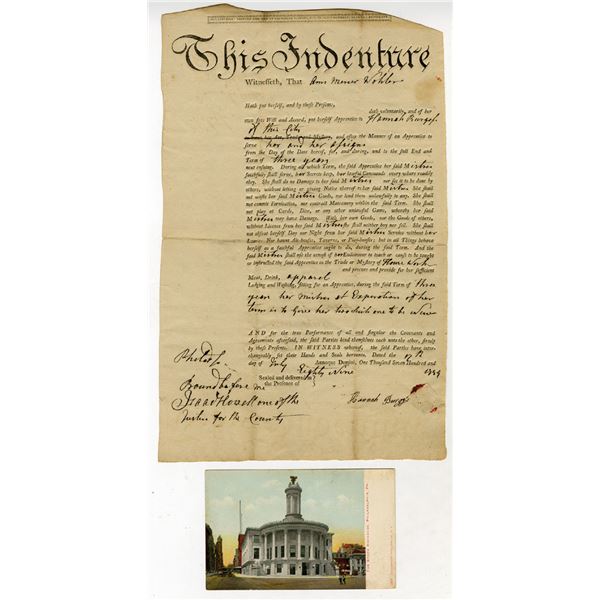 This Indenture
Witnesseth, That Ann
Hath put herself, and by these Presents,
doth voluntarily, and of her
own free Will and Accord, put herself Apprentice to Hannah Burge
of this City
and after the Manner of an Apprentice to
serve her and her assigns
from the Day of the Date hereof, for, and during, and to the full End and
Term of three years
next ensuing. During all which Term, the said Apprentice her said Mistress
faithfully shall serve, her Secrets keep, her lawful Commands every where readily
obey. She shall do no Damage to her said Mistress nor see it to be done by
others, without letting or giving Notice thereof to her said Mistress She shall
not waste her said Mistress Goods, nor lend them unlawfully to any. She shall
not commit Fornication, nor contract Matrimony within the said Term. She shall
not play at Cards, Dice, or any other unlawful Game, whereby her said
Mistress may have Damage. With her own Goods, nor the Goods of others,
without Licence from her said Mistress she shall neither buy nor sell. She shall
not absent herself Day nor Night from her said Mistress Service without her
Leave: Nor haunt Ale-houses, Taverns, or Play-houses; but in all Things behave
herself as a faithful Apprentice ought to do, during the said Term. And the
said Mistress shall use the utmost of her Endeavour to teach or cause to be taught
or instructed the said Apprentice in the Trade or Mystery of House Work
and procure and provide for her sufficient
Meat, Drink, apparel
Lodging and Washing, fitting for an Apprentice, during the said Term of three
years her Mistress at Expiration of her
term is to Give her two one to be New
AND for the true Performance of all and singular the Covenants and
Agreements aforesaid, the said Parties bind themselves each unto the other, firmly
by these Presents. IN WITNESS whereof, the said Parties have inter-
changeably set their Hands and Seals hereunto. Dated the 9th
Day of July Annoque Domini, One Thousand Seven Hundred and
Eighty Nine 1789
Sealed and delivered in
the Presence of
Philad
Bound before me
Isaac Howell one of the
Justice for the County
Hannah Burge